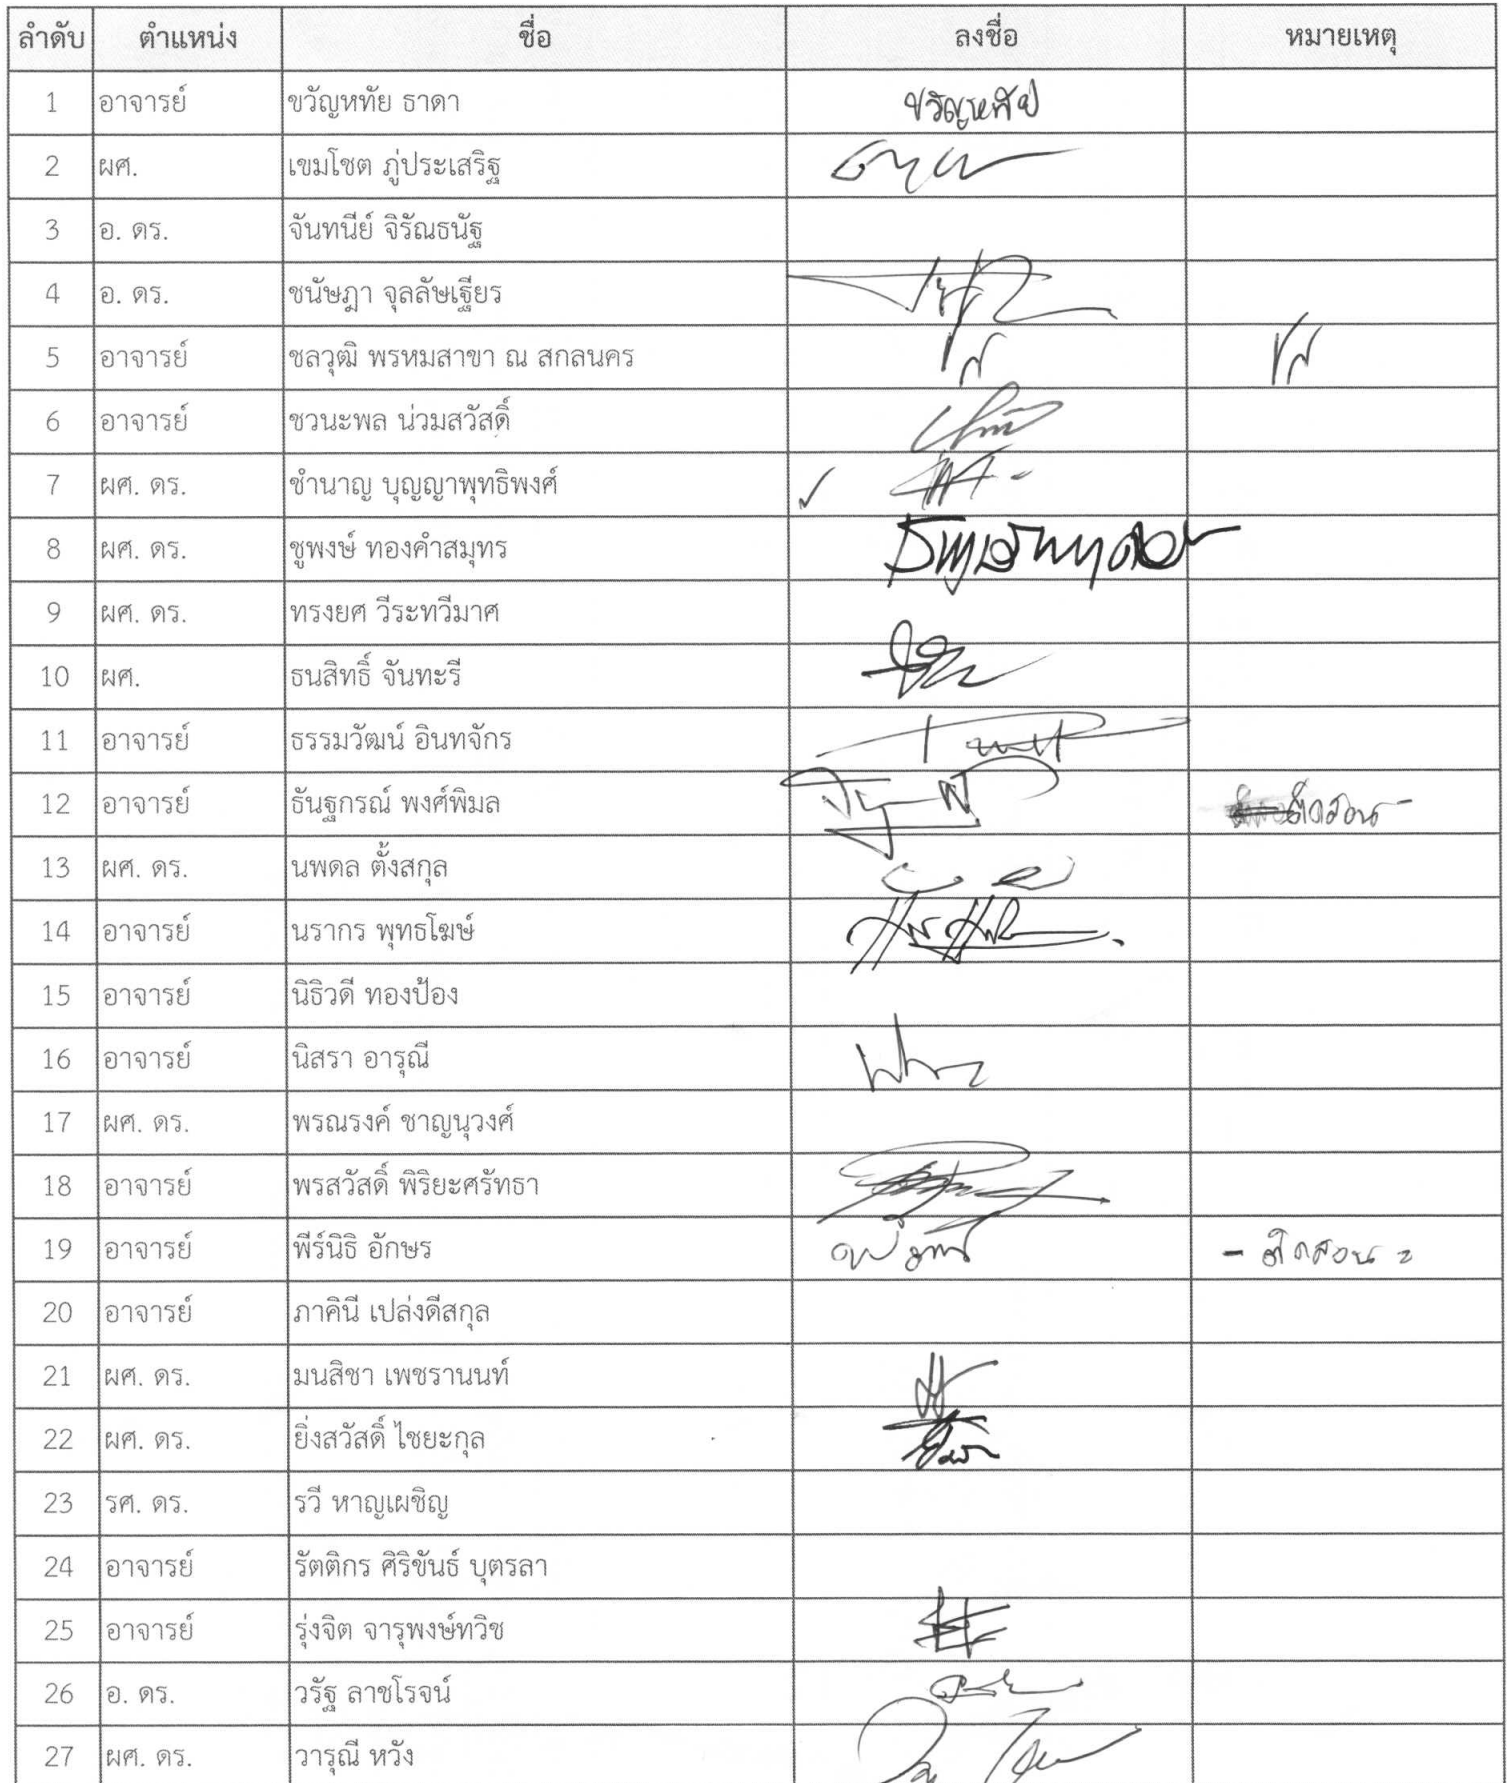 ลำดับ ตำแหน่ง ชื่อ ลงชื่อ หมายเหตุ
1 อาจารย์ ขวัญหทัย ธาดา ขวัญหทัย
2 ผศ. เขมโชต ภู่ประเสริฐ
3 อ. ดร. จันทนีย์ จิรัณธนัฐ
4 อ. ดร. ชนัษฎา จุลลัษเฐียร
5 อาจารย์ ชลวุฒิ พรหมสาขา ณ สกลนคร
6 อาจารย์ ชวนะพล น่วมสวัสดิ์
7 ผศ. ดร. ชำนาญ บุญญาพุทธิพงศ์
8 ผศ. ดร. ชูพงษ์ ทองคำสมุทร
9 ผศ. ดร. ทรงยศ วีระทวีมาศ
10 ผศ. ธนสิทธิ์ จันทะรี
11 อาจารย์ ธรรมวัฒน์ อินทจักร
12 อาจารย์ ธันฐกรณ์ พงศ์พิมล ติดสอน
13 ผศ. ดร. นพดล ตั้งสกุล
14 อาจารย์ นรากร พุทธโฆษ์
15 อาจารย์ นิธิวดี ทองป้อง
16 อาจารย์ นิสรา อารุณี
17 ผศ. ดร. พรณรงค์ ชาญนุวงศ์
18 อาจารย์ พรสวัสดิ์ พิริยะศรัทธา
19 อาจารย์ พีร์นิธิ อักษร - ติดสอน
20 อาจารย์ ภาคินี เปล่งดีสกุล
21 ผศ. ดร. มนสิชา เพชรานนท์
22 ผศ. ดร. ยิ่งสวัสดิ์ ไชยะกุล
23 รศ. ดร. รวี หาญเผชิญ
24 อาจารย์ รัตติกร ศิริขันธ์ บุตรลา
25 อาจารย์ รุ่งจิต จารุพงษ์ทวิช
26 อ. ดร. วรัฐ ลาชโรจน์
27 ผศ. ดร. วารุณี หวัง